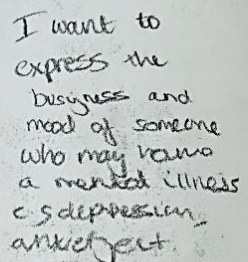 I want to
express the
busyness and
mood of someone
who may have
a mental illness
e.g depression
anxiety ect.